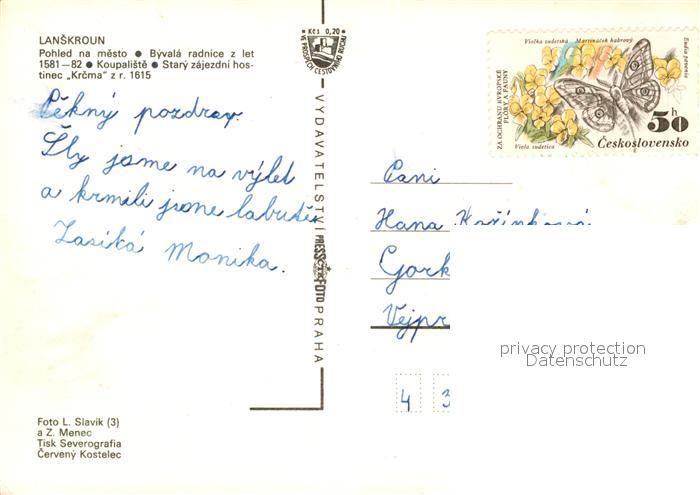 LANŠKROUN
Pohled na město ● Bývalá radnice z let
1581—82 ● Koupaliště ● Starý zájezdní hos-
tinec „Krčma" z r. 1615
Pěkný pozdrav
Šly jsme na výlet
a krmili jsme labutě.
Zasílá Monika.
Foto L. Slavík (3)
a Z. Menec
Tisk Severografia
Červený Kostelec
Kčs 0,20
VE PROSPĚCH CESTOVNÍHO RUCHU
VYDAVATELSTVÍ PRESSFOTO PRAHA
Violka sudetská Martináček habrový
Eudia pavonia
ZA OCHRANU EVROPSKÉ
FLÓRY A FAUNY
Viola sudetica
50 h
Československo
Paní
Hana Kořínková
Gork
Vejpr
4 3
privacy protection
Datenschutz